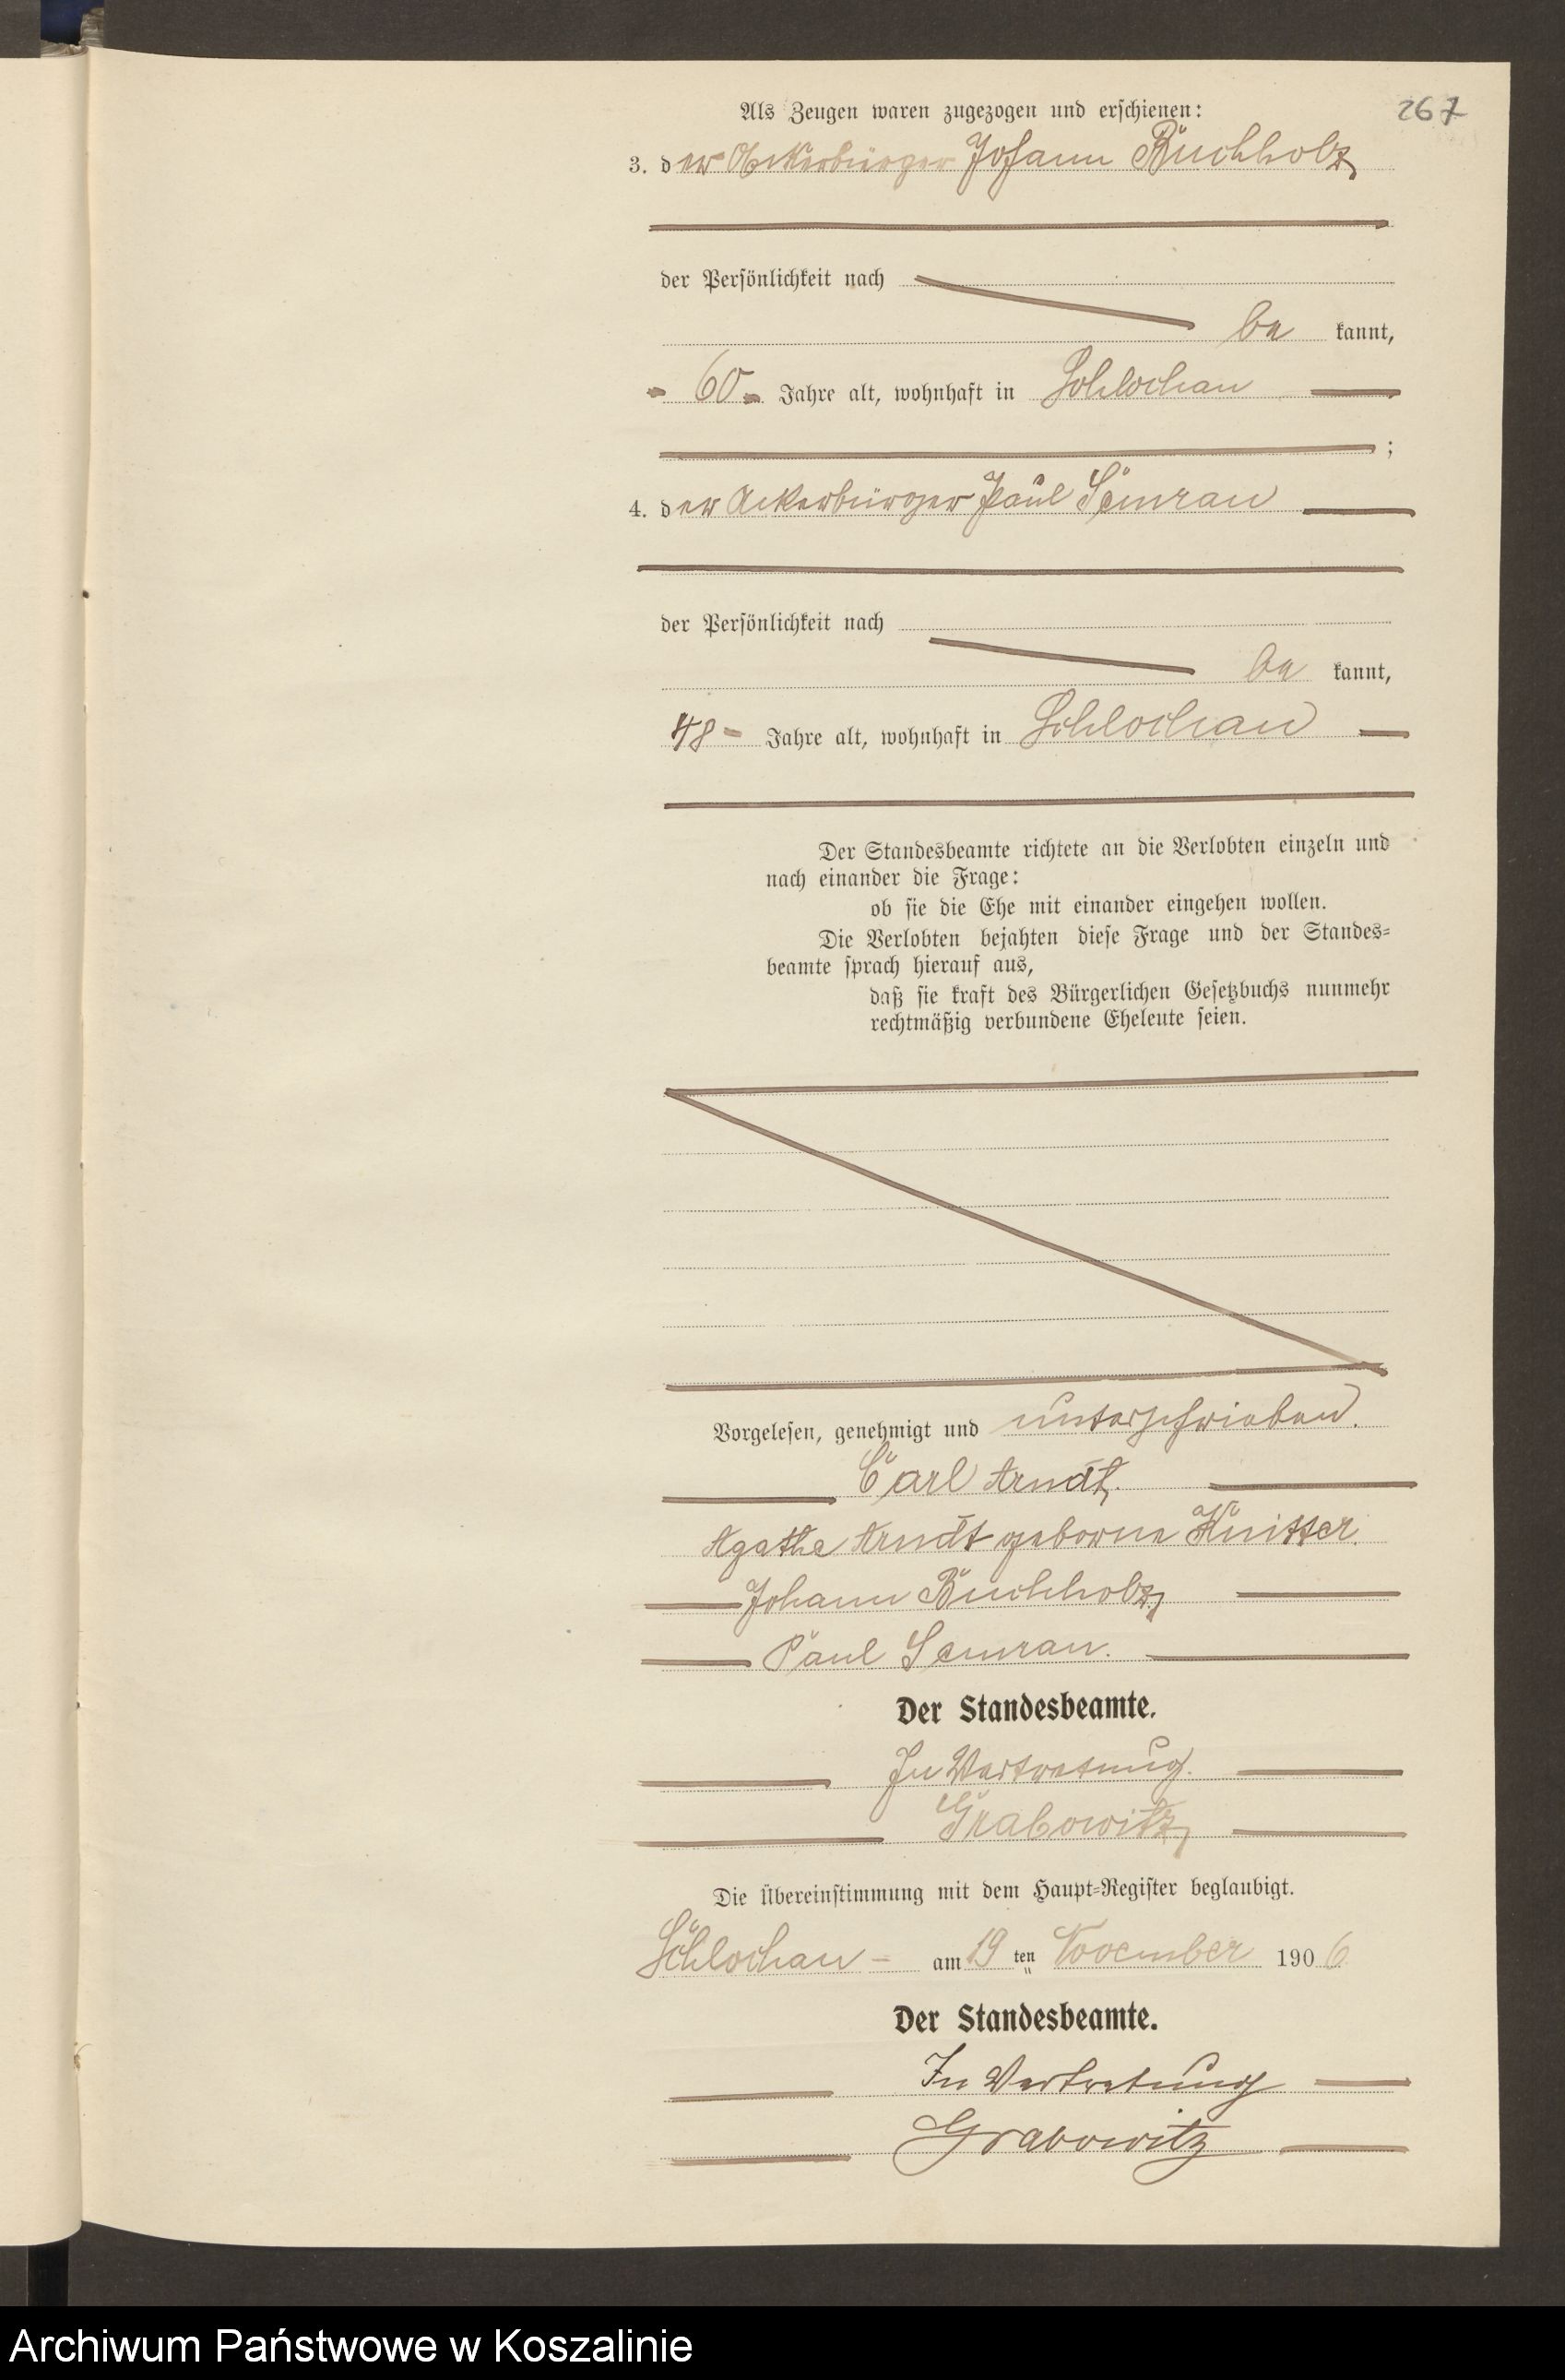 267
Als Zeugen waren zugezogen und erschienen:
3. der Ackerbürger Johann Buchholz
der Persönlichkeit nach
be kannt,
60 Jahre alt, wohnhaft in Schlochau
;
4. der Ackerbürger Paul Semrau
der Persönlichkeit nach
be kannt,
48 Jahre alt, wohnhaft in Schlochau
Der Standesbeamte richtete an die Verlobten einzeln und
nach einander die Frage:
ob sie die Ehe mit einander eingehen wollen.
Die Verlobten bejahten diese Frage und der Standes=
beamte sprach hierauf aus,
daß sie kraft des Bürgerlichen Gesetzbuchs nunmehr
rechtmäßig verbundene Eheleute seien.
Vorgelesen, genehmigt und unterschrieben.
Carl Arndt.
Agathe Arndt geborne Knitter.
Johann Buchholz,
Paul Semrau.
Der Standesbeamte.
In Vertretung.
Grabowitz,
Die Übereinstimmung mit dem Haupt=Register beglaubigt.
Schlochau - am 19 ten November 1906
Der Standesbeamte.
In Vertretung
Grabowitz
Archiwum Państwowe w Koszalinie